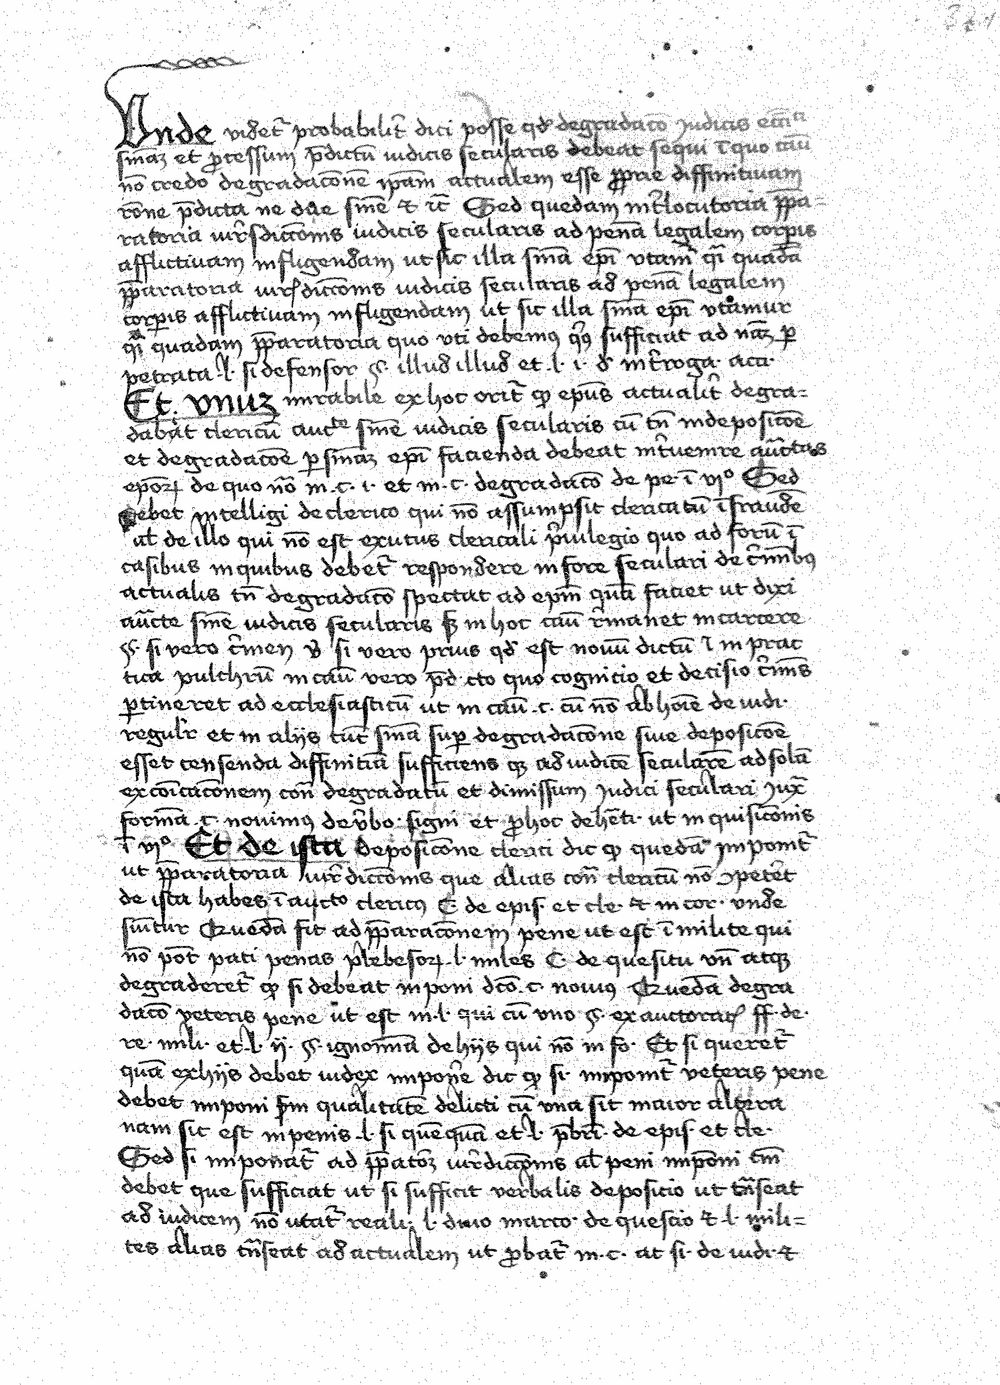 Unde videt̄ probabilit̄ dici posse qd̄ degradac̄o Judicis
sn̄iaz et ꝓcessum p̄dictū iudicis secularis debeat sequi ī quo cāu
nō credo degradac̄onē ip̄am actualem esse ꝓprie diffinitiuam
rōne p̄dicta ne due sn̄ie ⁊ ic̄ Sed quedam int̄locutoria p̄pa=
ratoria iur̄sdicc̄onis iudicis secularis ad penā legalem corꝑis
afflictiuam infligendam ut sic illa sn̄ia ep̄i utam̄ qi quadā
p̄paratoria iur̄sdicc̄onis iudicis secularis ad penā legalem
corꝑis afflictiuam infligendam ut sic illa sn̄ia ep̄i utamur
qi quadam p̄paratoria quo uti debemꝰ sufficiat ad ꝑ
petrata .l. si defensor §. illud illud et .l. i. d̄ int̄roga. acti.
Et. unuz mirabile ex hoc orit̄ ꝙ ep̄us actualit̄ degra=
dabat clericū aucte sn̄ie iudicis secularis cū tn̄ in deposic̄oe
et degradac̄oe ꝑ sn̄iaz ep̄i facienda debeat int̄uenire
ep̄oꝝ de quo nō in .c. i. et in .c. degradac̄o de pe. ī vi° Sed
debet intelligi de clerico qui nō assumpsit clericatū ī fraudē
ul̄ de illo qui nō est exutus clericali p̄uilegio quo ad forū ī
casibus in quibus debet̄ respondere in foro seculari de c̄minibꝰ
actualis tn̄ degradac̄o spectat ad ep̄m quā faciet ut dixi
aūcte sn̄ie iudicis secularis s̄ in hoc cāu r̄manet in carcere
§. si vero c̄men ℣ si vero prius qd̄ est nouū dictū ī in prac
tica pulchrū in cāu vero p̄d cto quo cognicio et decisio c̄minis
ꝑtineret ad ecclesiasticū ut in cāu .c. cū nō ab hoīe de iudi.
regulr̄ et in alijs tūc sn̄ia suꝑ degradac̄one siue deposic̄oe
esset censenda diffinitiā sufficiens qꝫ ad iudicē secularē ad solā
excōicac̄onem con̄ degradatū et dimissum Judici seculari Jux̄
formā .c. nouimꝰ de v̄bo. signi et ꝓ hoc de hēti. ut inquisic̄onis
ī vi° Et de ista deposic̄one clerici dic ꝙ quedā Jmponit̄
ut p̄paratoria iur̄dicc̄onis que alias con̄ clericū nō ꝯpetēt
de ista habes ī aucto clericꝰ C. de epis. et cle. ⁊ in cor. unde
sūitur Quedā fit ad p̄parac̄onem pene ut est ī milite qui
nō pōt pati penas plebesoꝝ .l. miles C. de questiū un̄ atqꝫ
degraderet̄ ꝙ si debeat inponi dc̄o .c. nouiꝰ Quedā degra
dac̄o veteris pene ut est in .l. qui cū uno §. exauctoratꝰ ff. de.
re. mili. et .l. ij. §. ignominiā de hijs qui nō in fo. Et si queret̄
quā ex hijs debet iudex inponere dic ꝙ si. inponit̄ veteris pene
debet inponi s̄m qualitatē delicti cū una sit maior altera
nam sic est in penis .l. si quē quā et .l. p̄bri. de epis. et cle.
Sed si inponat̄ ad p̄patoz iur̄dicc̄onis ul̄ peni inponi tm̄
debet que sufficiat ut si sufficit uerbalis deposicio ut tn̄seat
ad iudicem nō utat̄ reali. l. diuo marco. de questio ⁊ .l. mili=
tes alias tn̄seat ad actualem ut ꝓbat̄ in .c. at si. de iudi. ⁊